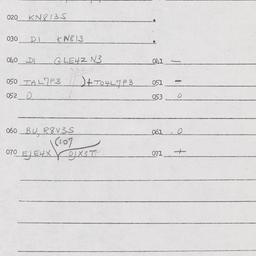 020 KN8135
030 DI KN813
040 DI GLE4Z N3 041 —
050 TAL7P3 )+TO4L7P3 051 —
052 0 053 0
060 BU, R8V35 061 0
(107
070 EJE4X DJX3T 071 +